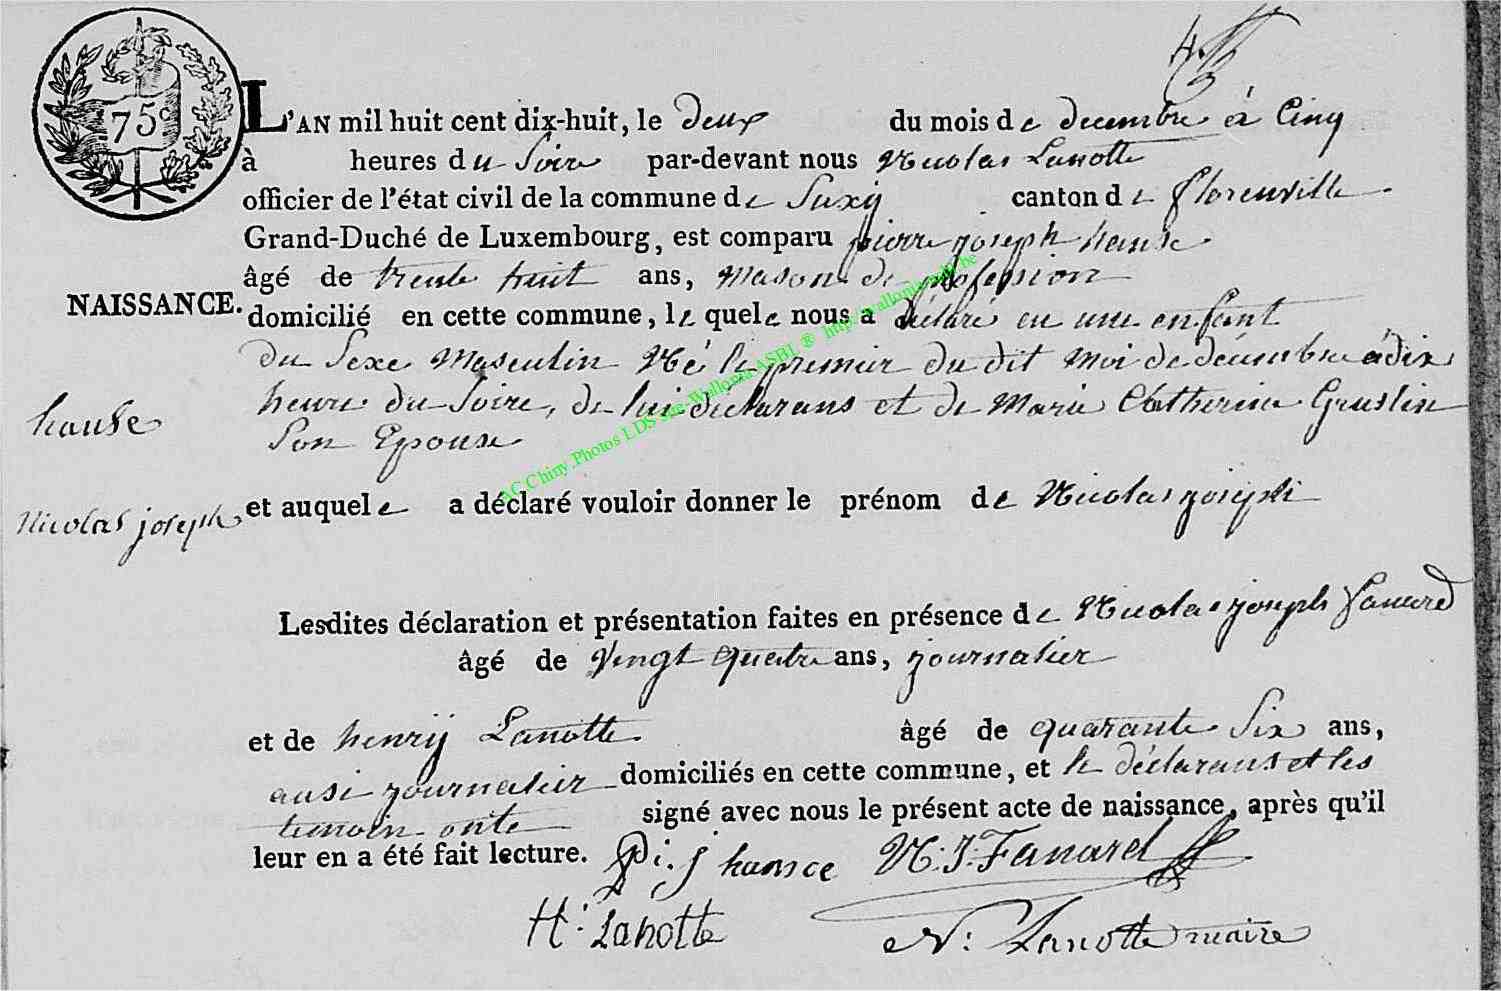 75c
L'AN mil huit cent dix-huit, le deux du mois de decembre à Cinq
à heures du Soire par-devant nous Nicolas Lanotte
officier de l'état civil de la commune de Suxy canton de florenville
Grand-Duché de Luxembourg, est comparu pierre joseph hanse
âgé de trente huit ans, Mason de profession
NAISSANCE.
domicilié en cette commune, le quele nous a déclaré eu une enfant
du Sexe Masculin Né le premier du dit Moi de décembre à dix
heure du Soire, de lui déclarans et de Marie Catherine Gruslin
Son Epouse
hanse
Nicolas joseph
et auquele a déclaré vouloir donner le prénom de Nicolas joseph
Lesdites déclaration et présentation faites en présence de Nicolas joseph fanard
âgé de Vingt quatre ans, journalier
et de henrÿ Lanotte âgé de quarante Six ans,
ausi journalier domiciliés en cette commune, et le déclarans et les
temoin onte signé avec nous le présent acte de naissance, après qu'il
leur en a été fait lecture.
pi. j hansce N: J: Fanard
H: Lanotte
N: Lanotte maire
AC Chiny Photos LDS Wallonia ASBL ® http:wallonia-asbl.be